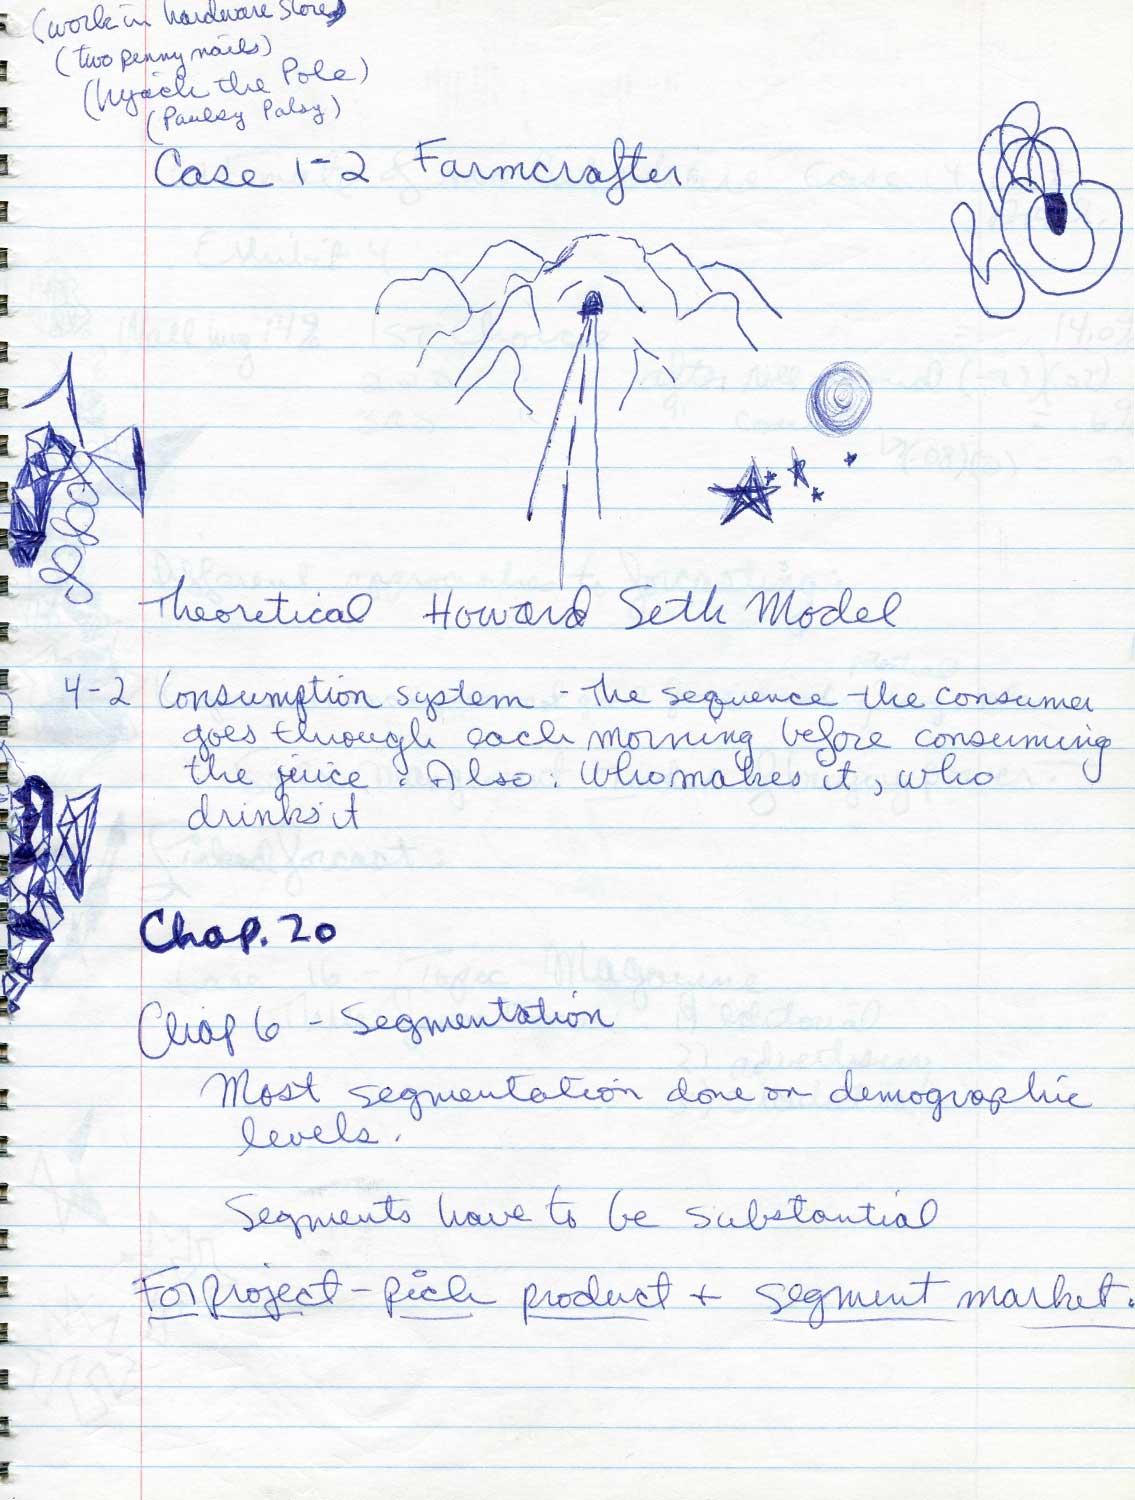 (work in hardware store)
(two penny nails)
(hyjack the Pole)
(Paulsy Palsy)
Case 1-2 Farmcrafter
Theoretical Howard Seth Model
4-2 Consumption system - the sequence the consumer
goes through each morning before consuming
the juice. Also: Who makes it, who
drinks it
Chap. 20
Chap 6 - Segmentation
Most segmentation done on demographic
levels.
Segments have to be substantial
For project - pick product + segment market.